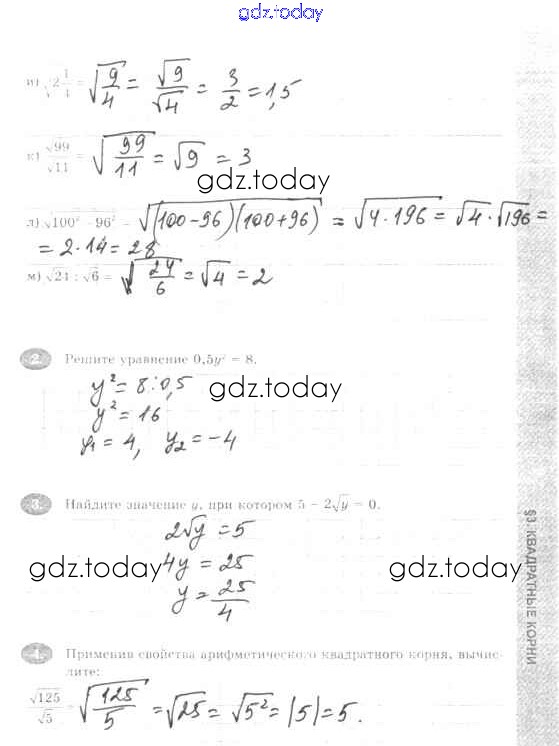 gdz.today
и) √2 1/4 = √(9/4) = √9/√4 = 3/2 = 1,5
к) √99/√11 = √(99/11) = √9 = 3
gdz.today
л) √(100² - 96²) = √((100-96)(100+96)) = √(4·196) = √4·√196 =
= 2·14 = 28
м) √24 : √6 = √(24/6) = √4 = 2
2. Решите уравнение 0,5y² = 8.
y² = 8:0,5
gdz.today
y² = 16
y₁ = 4, y₂ = -4
3. Найдите значение y, при котором 5 - 2√y = 0.
2√y = 5
gdz.today 4y = 25 gdz.today
y = 25/4
§3. КВАДРАТНЫЕ КОРНИ
4. Применив свойства арифметического квадратного корня, вычис-
лите:
√125/√5 = √(125/5) = √25 = √5² = |5| = 5.
gdz.today